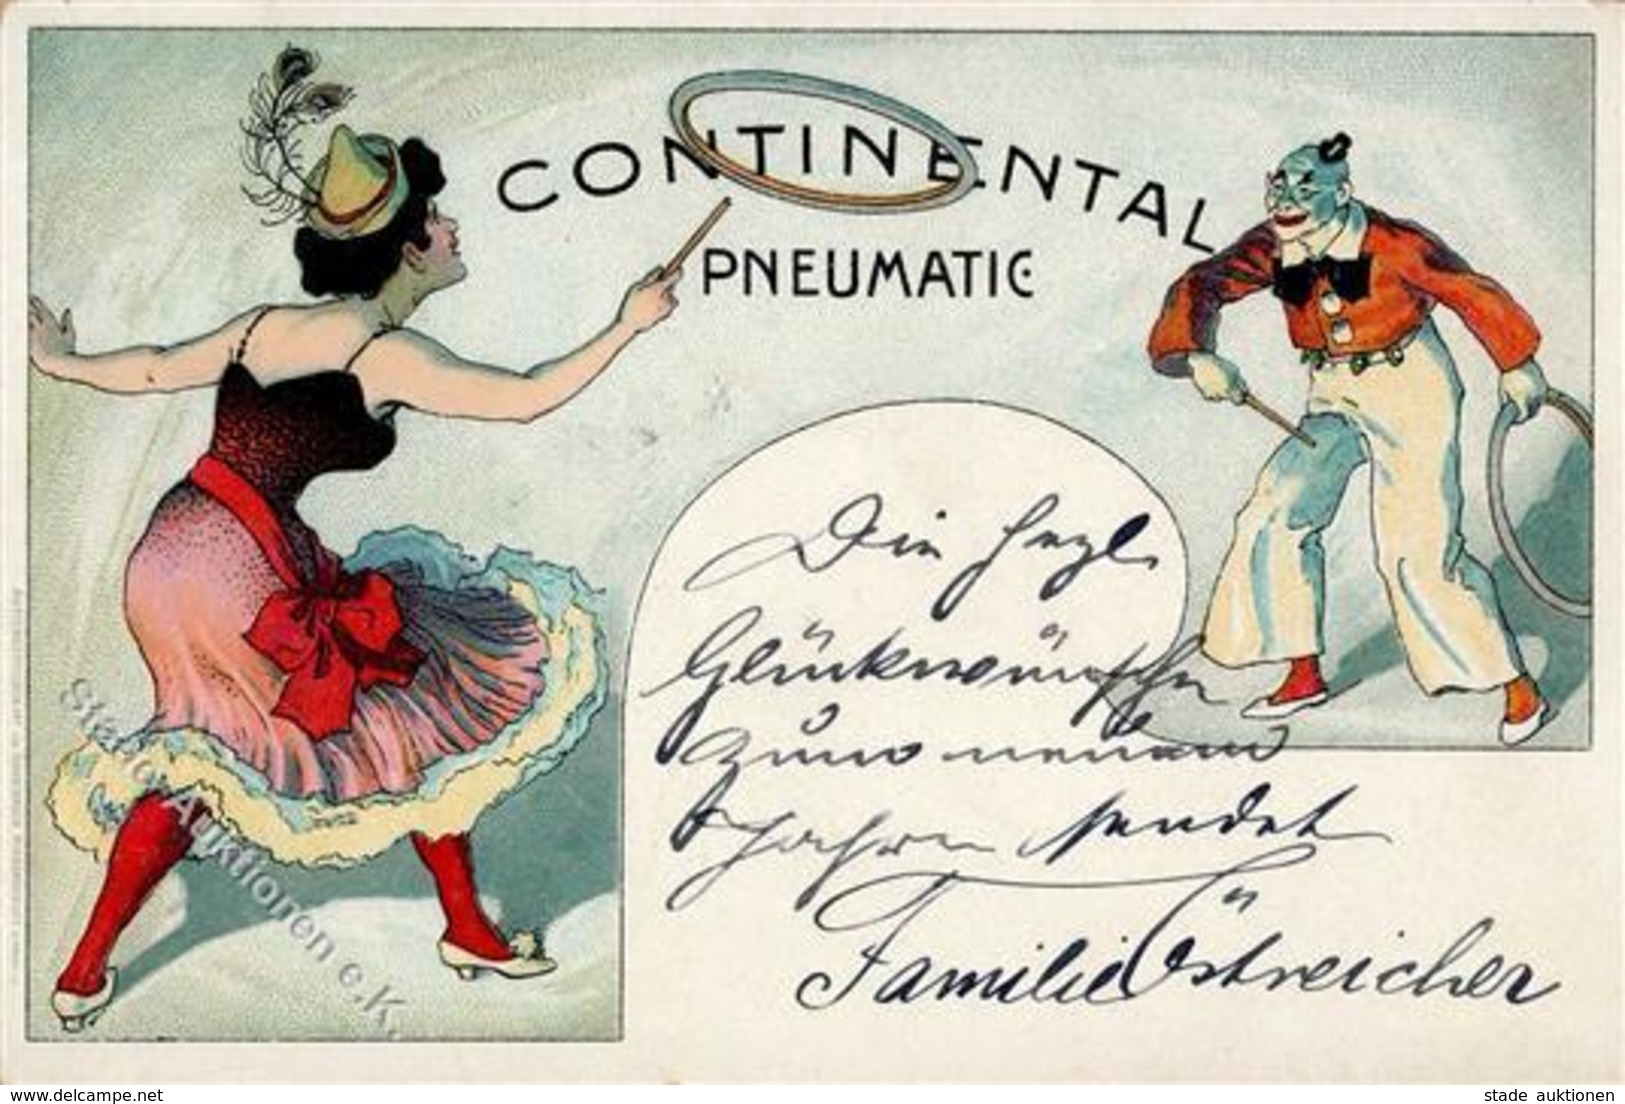 CONTINENTAL
PNEUMATIC
Die herzl.
Glückwünsche
zum neuen
Jahre sendet
Familie Östreicher
Stephan Auktionen e.K.
delcampe.net
stade auktionen